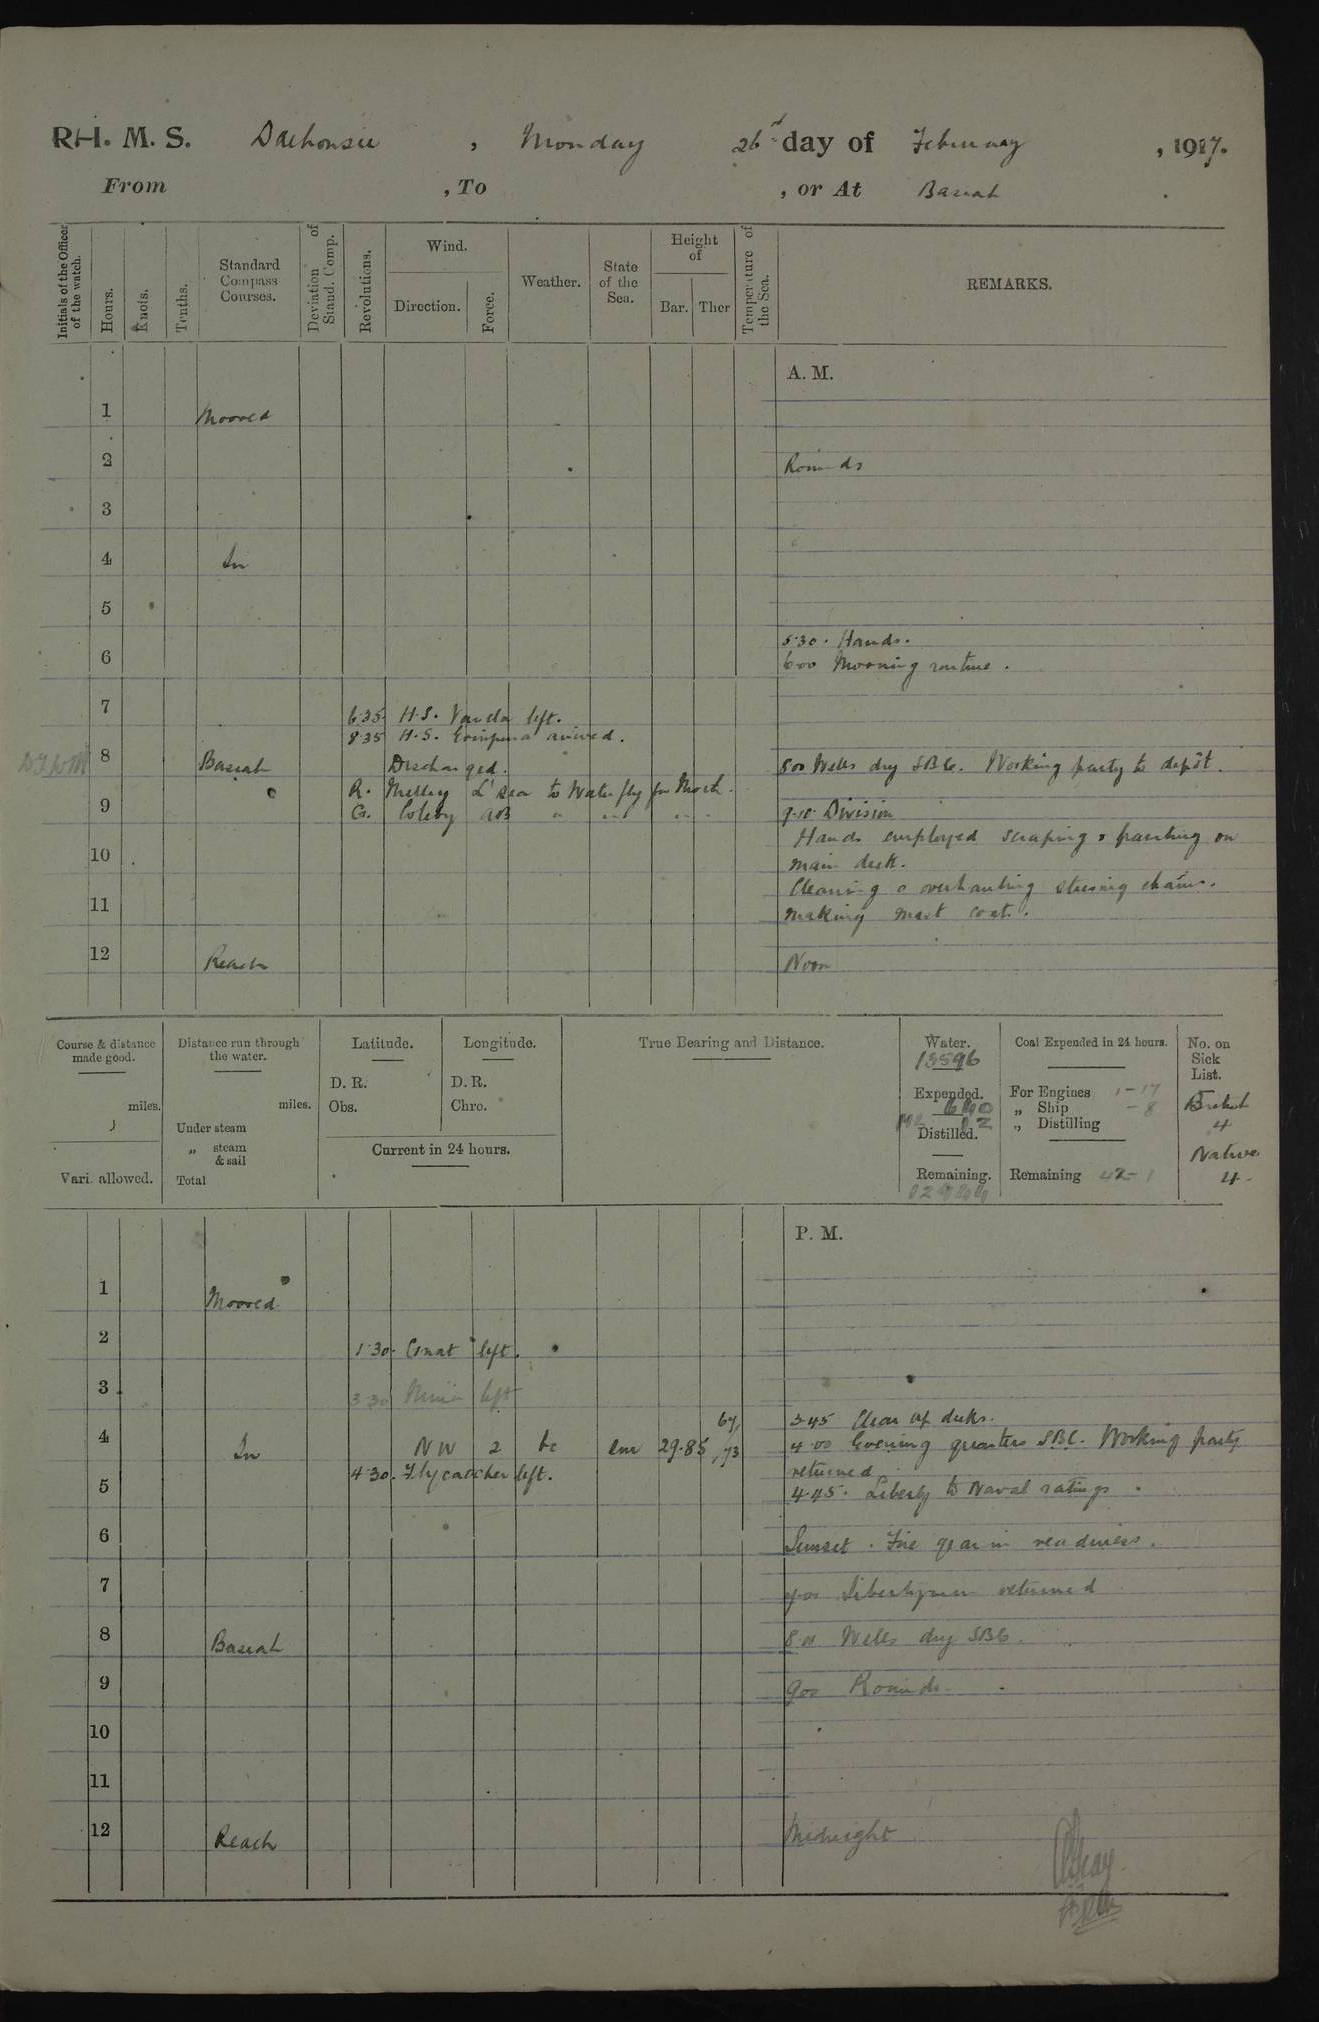 R.H. M. S. Dalhousie , Monday 26th day of February , 1917.
From , To , or At Basrah .
Initials of the Officer of the watch.
Hours.
Knots.
Tenths.
Standard Compass Courses.
Deviation of Stand. Comp.
Revolutions.
Wind.
Direction.
Force.
Weather.
State of the Sea.
Height of
Bar. Ther
Temperature of the Sea.
REMARKS.
A. M.
1 Moored
2 Rounds
3
4 In
5
5.30. Hands.
6 6.00 Morning routine.
7 6.35 H.S. Varela left.
8.35 H.S. Erinpura arrived.
8 Basrah Discharged. 8.00 Wells dry SBC. Working party to depôt.
R. L Sea to Waterfly for
9 G. AB " " " 9.10 Division
Hands employed scraping & painting on
10 main deck.
Cleaning & overhauling steering chains.
11 making mast coat.
12 Reach Noon
Course & distance made good.
miles.
Vari. allowed.
Distance run through the water.
miles.
Under steam
„ steam & sail
Total
Latitude.
D. R.
Obs.
Longitude.
D. R.
Chro.
Current in 24 hours.
True Bearing and Distance.
Water.
13596
Expended.
640
Distilled.
Remaining.
Coal Expended in 24 hours.
For Engines 1-17
„ Ship -8
„ Distilling
Remaining 42-1
No. on Sick List.
British
4
Native
4
P. M.
1 Moored
2 1.30 Gnat left.
3 3.30 left
67
3.45 Clear up decks.
4 In NW 2 bc sm 29.85 73 4.00 Evening quarters SBC. Working party
4.30. Flycatcher left. returned
5 4.45. Liberty to Naval ratings.
6 Sunset. Fire gear in readiness.
7 7.00 Libertymen returned
8 Basrah 8.00 Wells dry SBC.
9 9.00 Rounds
10
11
12 Reach Midnight